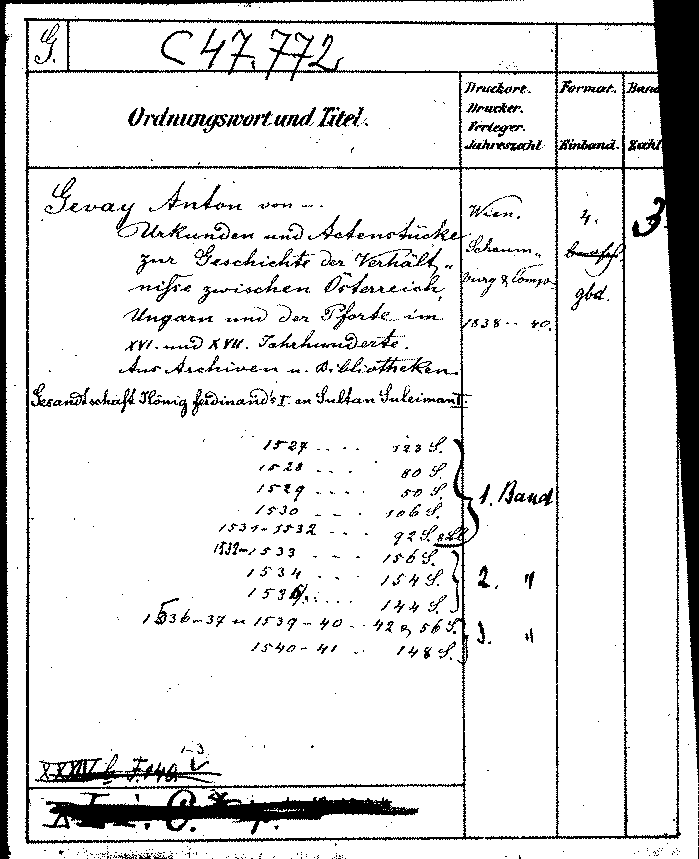 G.
C 47.772
Ordnungswort und Titel.
Druckort.
Drucker.
Verleger.
Jahreszahl
Format.
Einband.
Band
Zahl
Gevay Anton von –
Urkunden und Actenstücke
zur Geschichte der Verhält„
niſse zwischen Österreich,
Ungarn und der Pforte im
XVI. und XVII. Jahrhunderte.
Aus Archiven u. Bibliotheken.
Gesandtschaft König Ferdinand's I. an Sultan Suleiman I.
Wien.
Schaum„
burg & Comp.
1838 – 40.
4.
gbd.
3
1527 .... 123 S.
1528 ... 80 S.
1529 ... 50 S.
1530 .... 106 S.
1531–1532 ... 92 S.
1532–1533 .... 156 S.
1534 .... 154 S.
153 ... 144 S.
1536–37 u 1539–40 .. 42 & 56 S.
1540–41 .. 148 S.
1. Band
2. "
3. "
1-3
XXXIV b